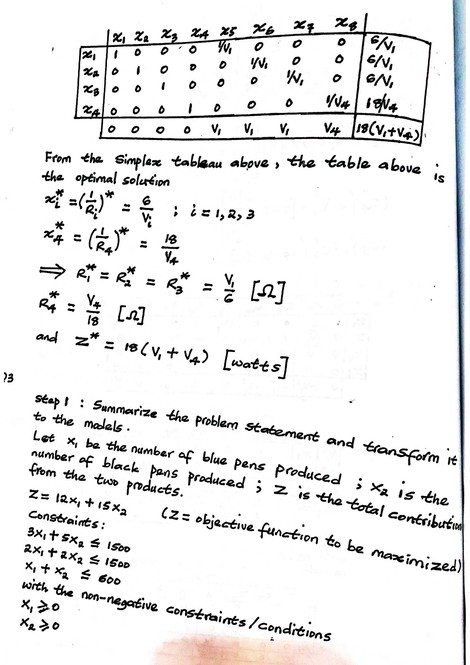 x₁ x₂ x₃ x₄ x₅ x₆ x₇ x₈
x₁ 1 0 0 0 1/V₁ 0 0 0 6/V₁
x₂ 0 1 0 0 0 1/V₁ 0 0 6/V₁
x₃ 0 0 1 0 0 0 1/V₁ 0 6/V₁
x₄ 0 0 0 1 0 0 0 1/V₄ 18/V₄
0 0 0 0 V₁ V₁ V₁ V₄ 18(V₁+V₄)
From the Simplex tableau above, the table above is
the optimal solution
xᵢ* = (1/Rᵢ)* = 6/Vᵢ ; i = 1, 2, 3
x₄* = (1/R₄)* = 18/V₄
⟹ R₁* = R₂* = R₃* = V₁/6 [Ω]
R₄* = V₄/18 [Ω]
and Z* = 18(V₁ + V₄) [watts]
23
step 1 : Summarize the problem statement and transform it
to the models.
Let x₁ be the number of blue pens produced ; x₂ is the
number of black pens produced ; Z is the total contribution
from the two products.
Z = 12x₁ + 15x₂ (Z = objective function to be maximized)
Constraints:
3x₁ + 5x₂ ≤ 1500
2x₁ + 2x₂ ≤ 1500
x₁ + x₂ ≤ 600
with the non-negative constraints/conditions
x₁ ≥ 0
x₂ ≥ 0